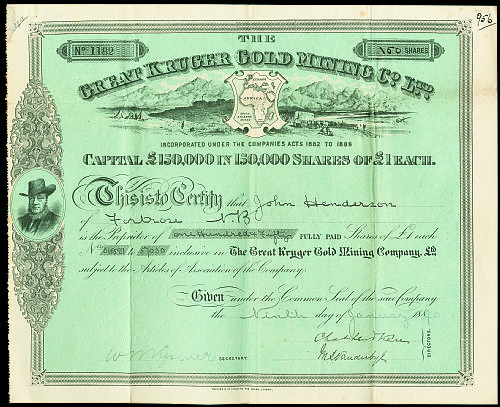 956
THE
GREAT KRUGER GOLD MINING Co. LTD.
No. 1182
150 SHARES
AFRICA
INCORPORATED UNDER THE COMPANIES ACTS 1862 TO 1886
CAPITAL £150,000 IN 150,000 SHARES OF £1 EACH.
This is to Certify that John Henderson
of Fortrose N.B.
is the Proprietor of One Hundred & Fifty FULLY PAID Shares of £1 each
Nos to inclusive in The Great Kruger Gold Mining Company, Ld.
subject to the Articles of Association of the Company.
Given under the Common Seal of the said Company
the Ninth day of January
SECRETARY.
DIRECTORS.